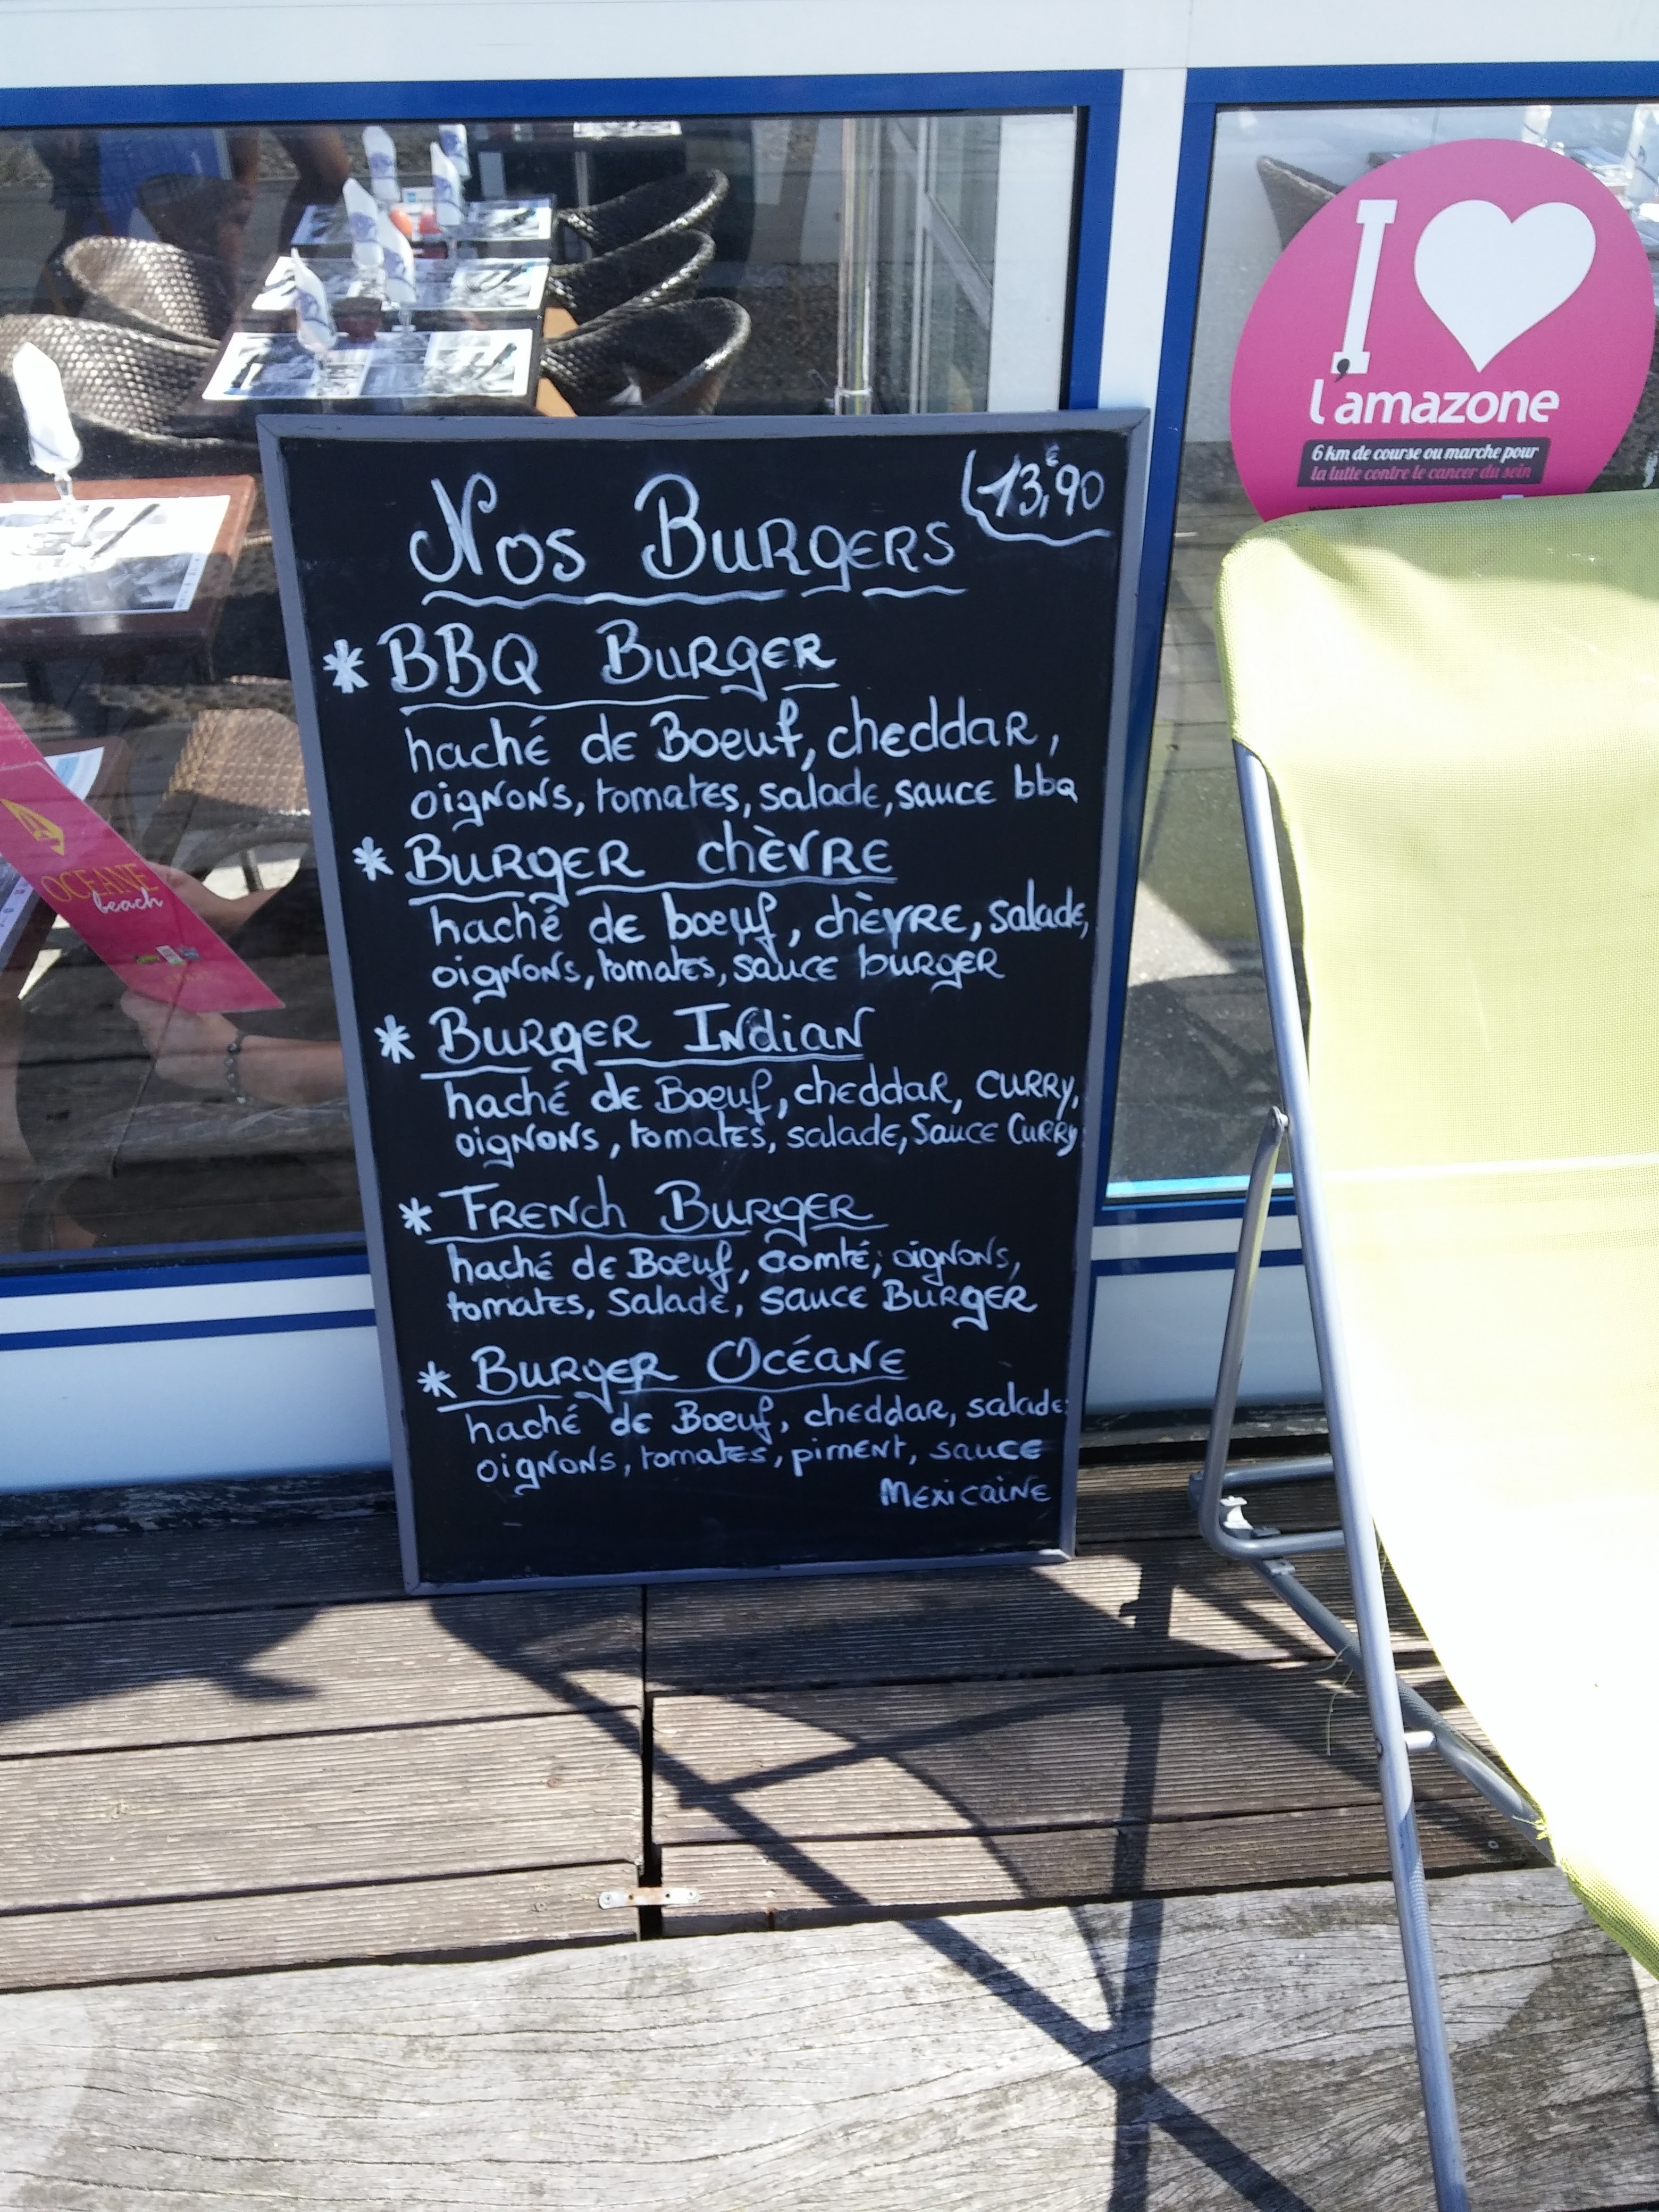 I
l'amazone
6 km de course ou marche pour
la lutte contre le cancer du sein
13,€90
Nos Burgers
* BBQ Burger
haché de Boeuf, cheddar,
oignons, tomates, salade, sauce bbq
* Burger chèvre
haché de boeuf, chèvre, salade,
oignons, tomates, sauce burger
* Burger Indian
haché de Boeuf, cheddar, curry,
oignons, tomates, salade, Sauce Curry
* French Burger
haché de Boeuf, comté, oignons,
tomates, Salade, sauce Burger
* Burger Océane
haché de Boeuf, cheddar, salade
oignons, tomates, piment, sauce
Mexicaine
OCEANE
beach